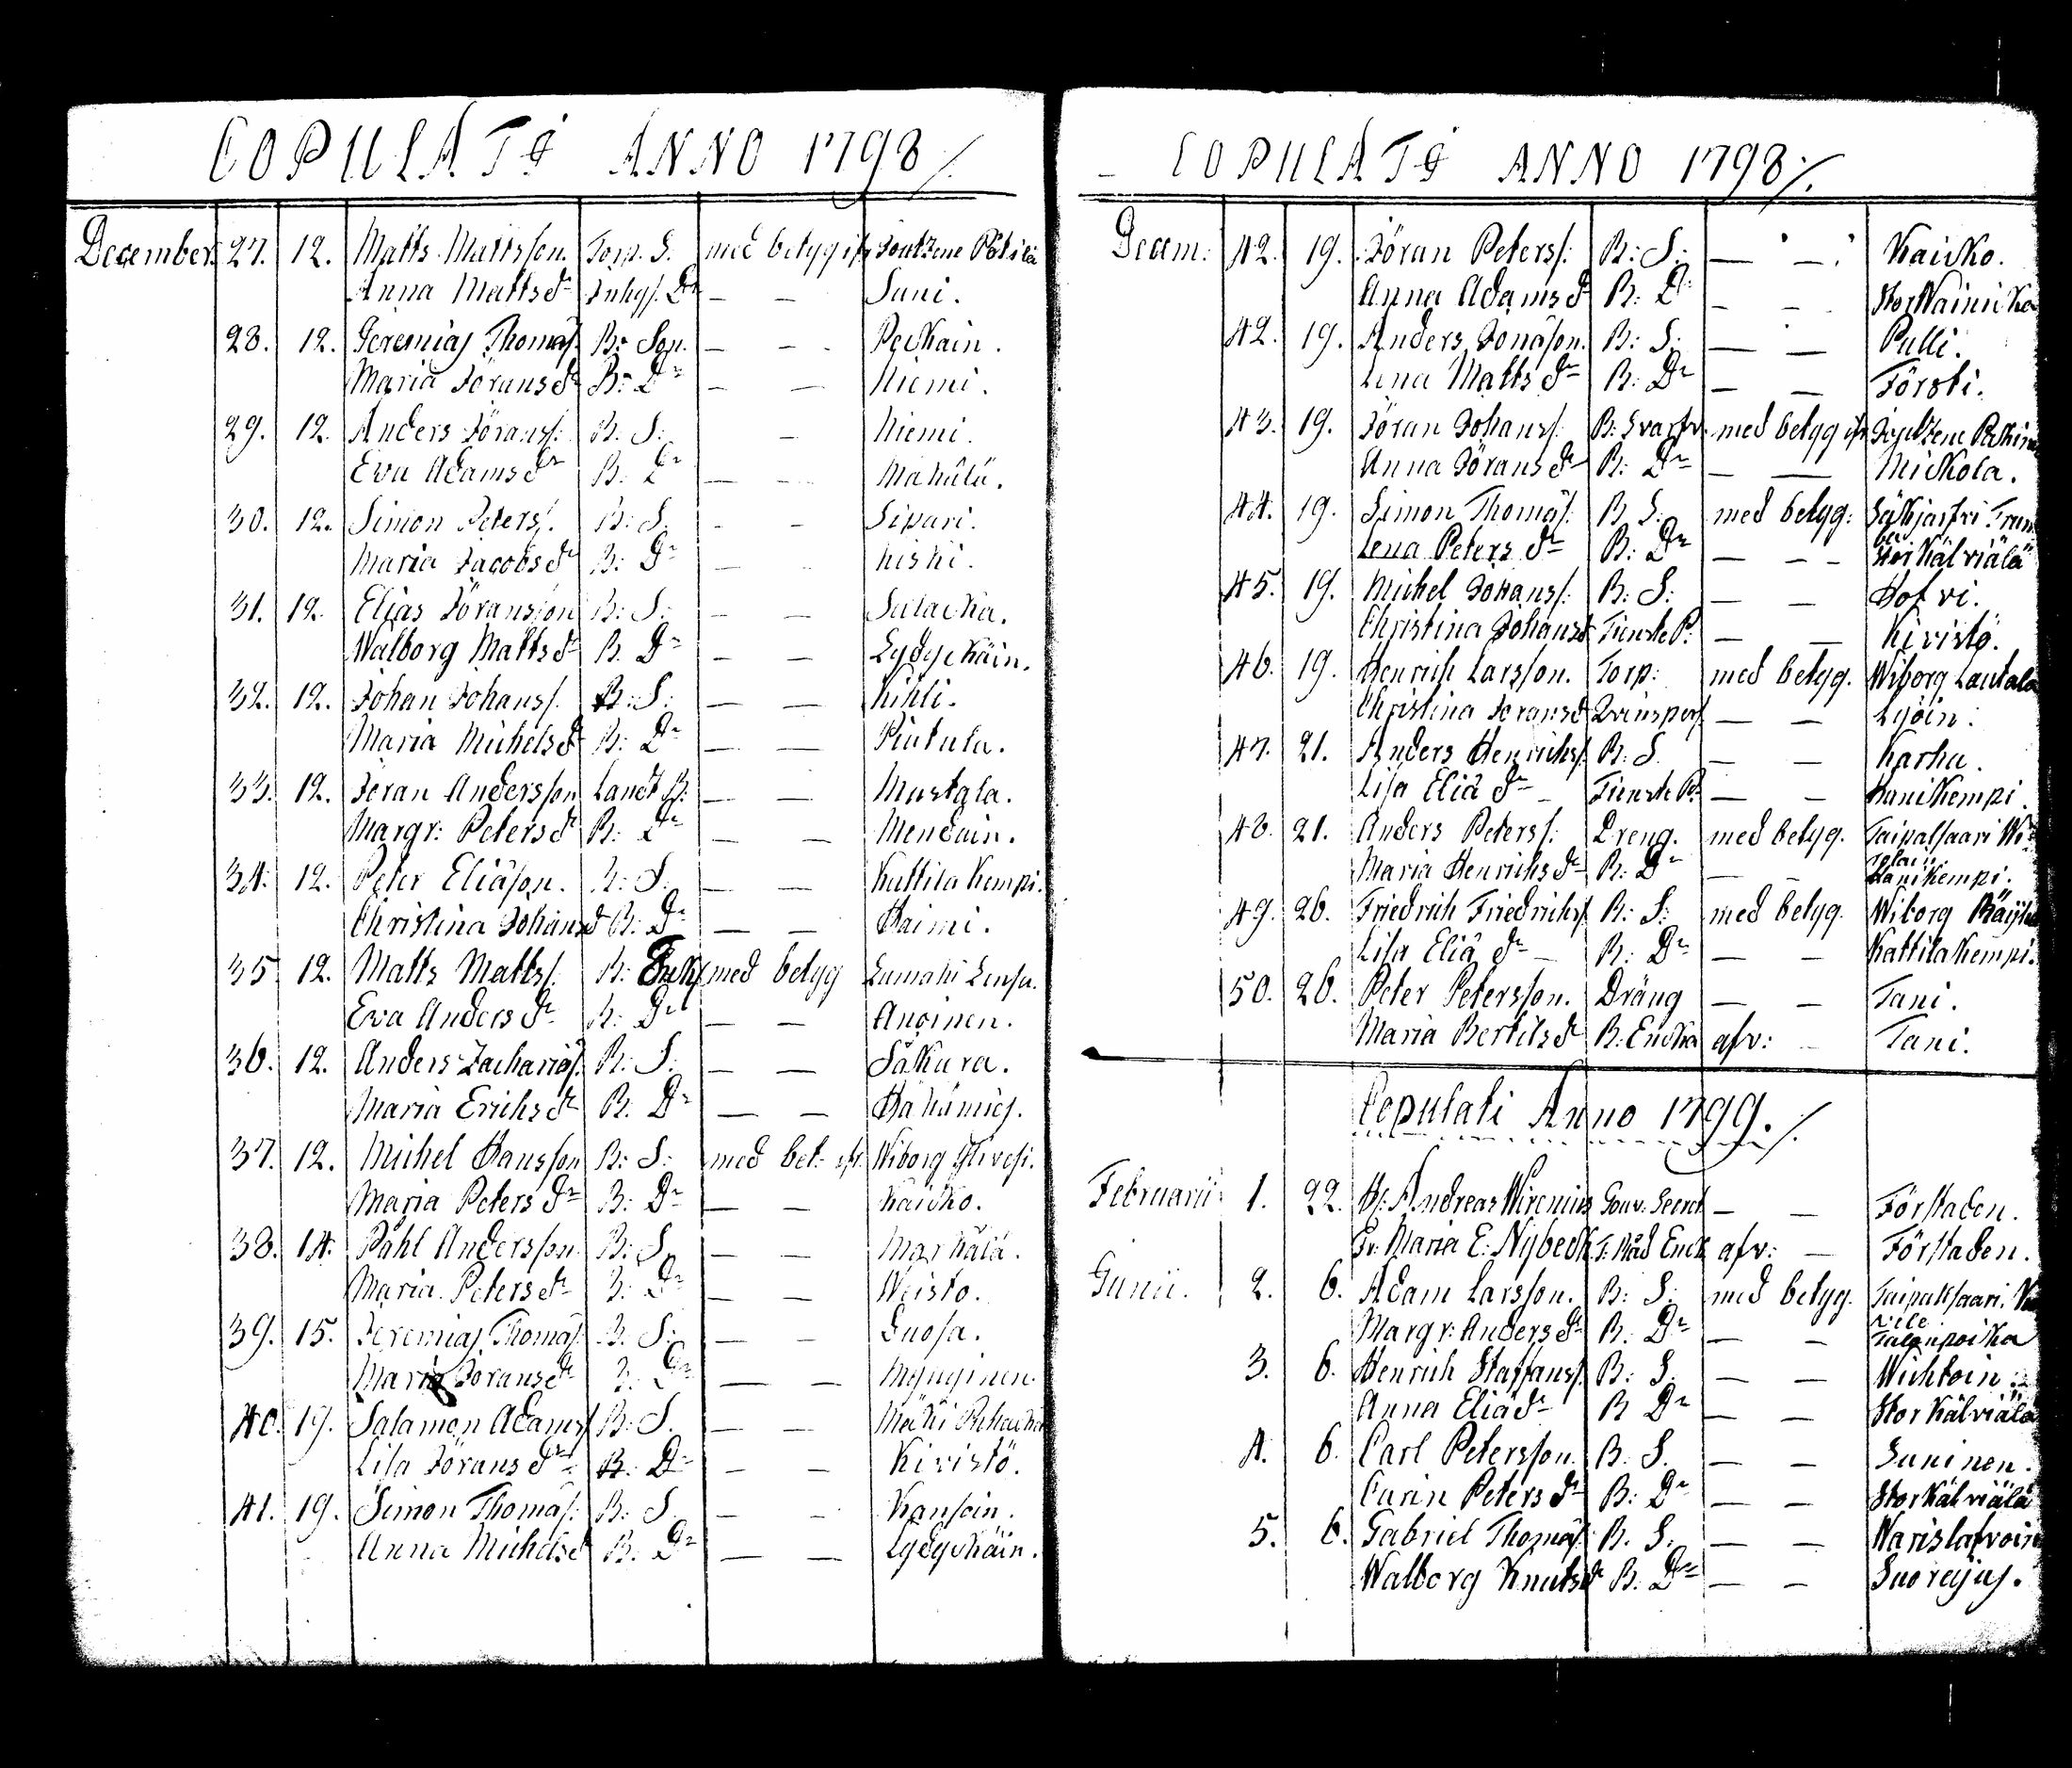 COPULATI ANNO 1798
December. 27. 12. Matts Mattsson. Torp. S. med betyg ifr Joutzene Pätilä
Anna Mattsdr Inhys. Dr — — Suni.
28. 12. Jeremias Thomas. B: Son. — — Peckain.
Maria Jöransdr B: Dr — — Niemi.
29. 12. Anders Jöranss: B. S: — Niemi.
Eva Adamsdr B. Dr — — Mahälä.
30. 12. Simon Peters. B: S. — — Sipari.
Maria Jacobsdr B: Dr — — Kiski.
31. 12. Elias Jöransson B: S: — — Sulacka.
Walborg Mattsdr B. Dr — — Lydyckäin.
32. 12. Johan Johanss. B: S: — — Kihli.
Maria Michelsdr B: Dr — — Piutula.
33. 12. Jöran Andersson Landt B: — — Mustala.
Margr: Petersdr B: Dr — — Mendäin.
34. 12. Peter Eliäson. B: S. — — Kattila Kempi.
Christina Johansd B: Dr — — Haimi.
35 12. Matts Matts. B: Enkl med betyg Lumäki
Eva Andersdr B: Dr — — Anoinen.
36. 12. Anders Zachariäs. B: S. — — Säkura.
Maria Ericksdr B. Dr — —
37. 12. Michel Hansson B: S: med bet: ifr. Wiborg Ylivesi.
Maria Petersdr B: Dr — — Kaicko.
38. 14. Påhl Andersson. B: S. — — Markälä.
Maria Petersdr B: Dr — — Weisto.
39. 15. Jeremias Thomäs. B. S: — — Suosa.
Maria Jöransdr B: Dr — —
40. 19. Salamon Adams B: S. — — Mäcki Pehacka
Lisa Jöransdr B: Dr — — Kivistö.
41. 19. Simon Thomäs. B: S — — Kansoin.
Anna Michelsd B. Dr — — Lydyckäin.
COPULATI ANNO 1798
Decem: 42. 19. Jöran Peterss: B: S: — — Kaicko.
Anna Adamsd B: Dr — — Stor Wainicka
42. 19. Anders Jonäson. B: S: — — Pulli.
Lena Mattsdr B: Dr — — Försti.
43. 19. Jöran Johans: B: Svarfv. med betyg ifr Joutzene
Anna Jöransdr B: Dr — — Mickola.
44. 19. Simon Thomäs: B S: med betyg: Säkjärfvi
Lena Petersdr B: Dr — — Stor Kälviälä
45. 19. Michel Johans: B: S: — — Hofvi.
Christina Johansd Tienste P: — — Kivistö.
46. 19. Henrich Larsson. Torp: med betyg. Wiborg Lautala
Christina Joransd — — Lyöin.
47. 21. Anders Henrichs. B: S. — — Karhu.
Lisa Eliädr Tienste P: — — Hanikempi.
48. 21. Anders Peterss: Dreng. med betyg. Taipalsaari
Maria Henrichsdr B: Dr — — Hanikempi.
49. 26. Friedrich Friedrichs. B: S: med betyg. Wiborg
Lisa Eliädr B: Dr — — Kattilakempi.
50. 26. Peter Petersson. Dräng — — Tani.
Maria Bertilsdr B: Encka afv: — Tani.
Copulati Anno 1799.
Februarii 1. 22. Hr: Andreas Wirenius Gouv. Secret — — Förstaden.
Fr: Maria E: Nybeck T. Råd Enck afv: — Förstaden.
Junii. 2. 6. Adam Larsson. B: S: med betyg. Taipalsaari.
Margr: Andersdr B: Dr — — Talonpoika
3. 6. Henrich Staffans. B: S: — — Wichtoin.
Anna Eliädr B Dr — — Stor Kälviälä
4. 6. Carl Petersson. B: S. — — Suninen.
Carin Petersdr B: Dr — — Stor Kälviälä
5. 6. Gabriel Thomäs. B. S: — — Narislafvoin
Walborg Knutsdr B: Dr — —